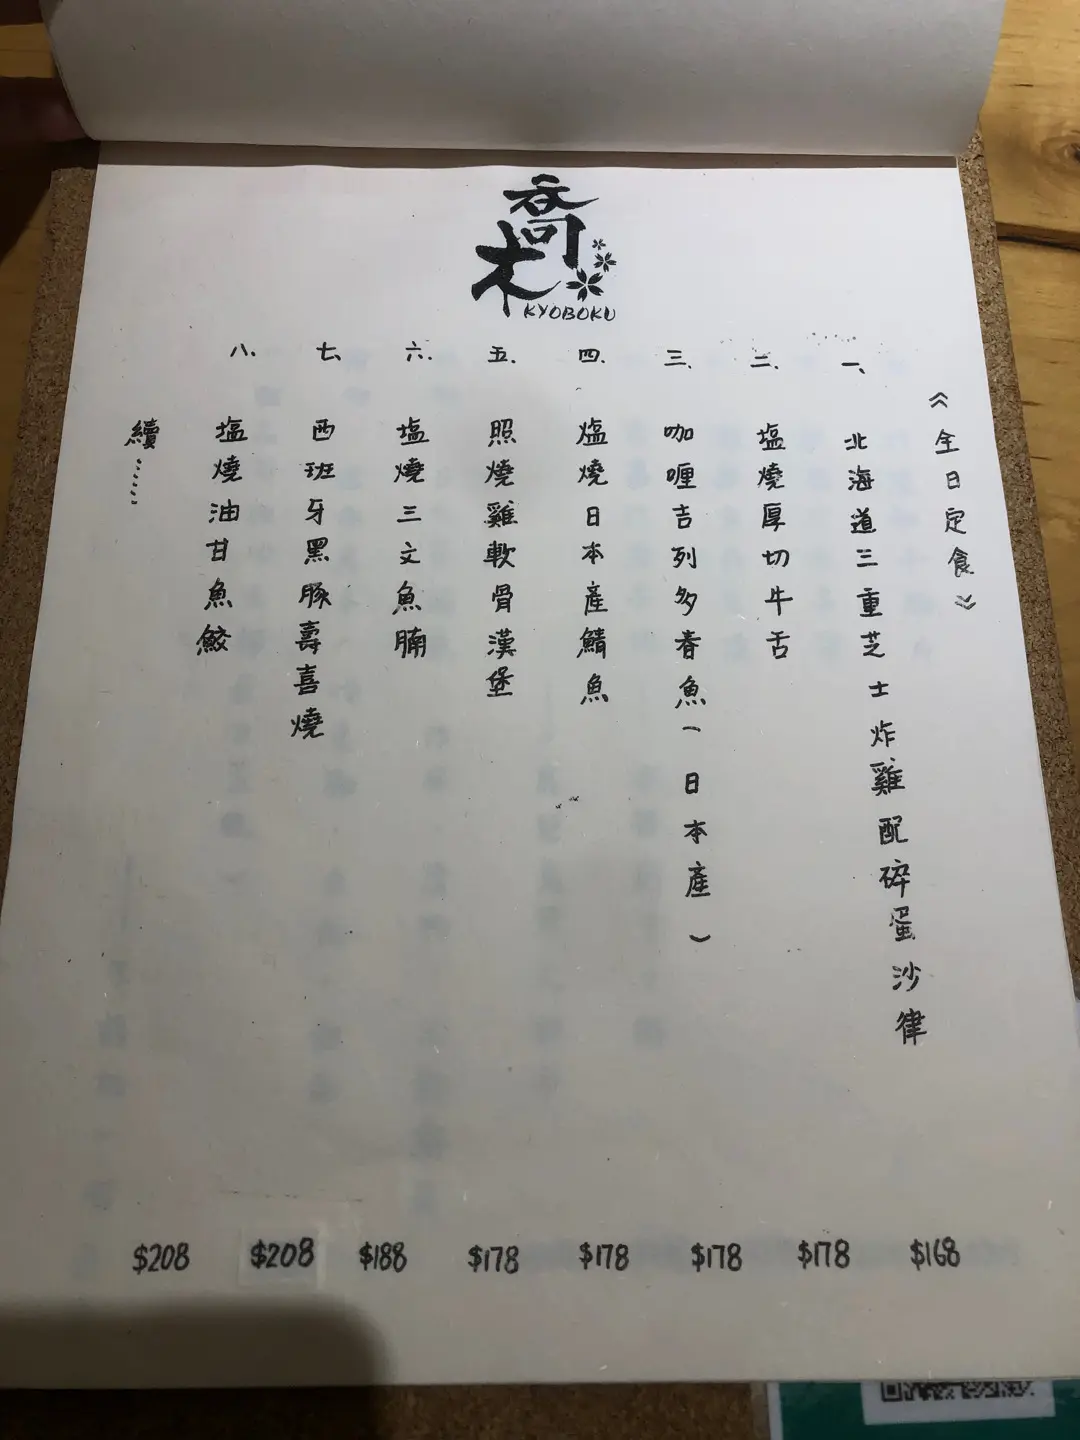 喬木
KYOBOKU
《全日定食》
一、北海道三重芝士炸雞配碎蛋沙律
$168
二、塩燒厚切牛舌
$178
三、咖喱吉列多春魚(日本產)
$178
四、塩燒日本產鯖魚
$178
五、照燒雞軟骨漢堡
$178
六、塩燒三文魚腩
$188
七、西班牙黑豚壽喜燒
$208
八、塩燒油甘魚鮫
$208
續......